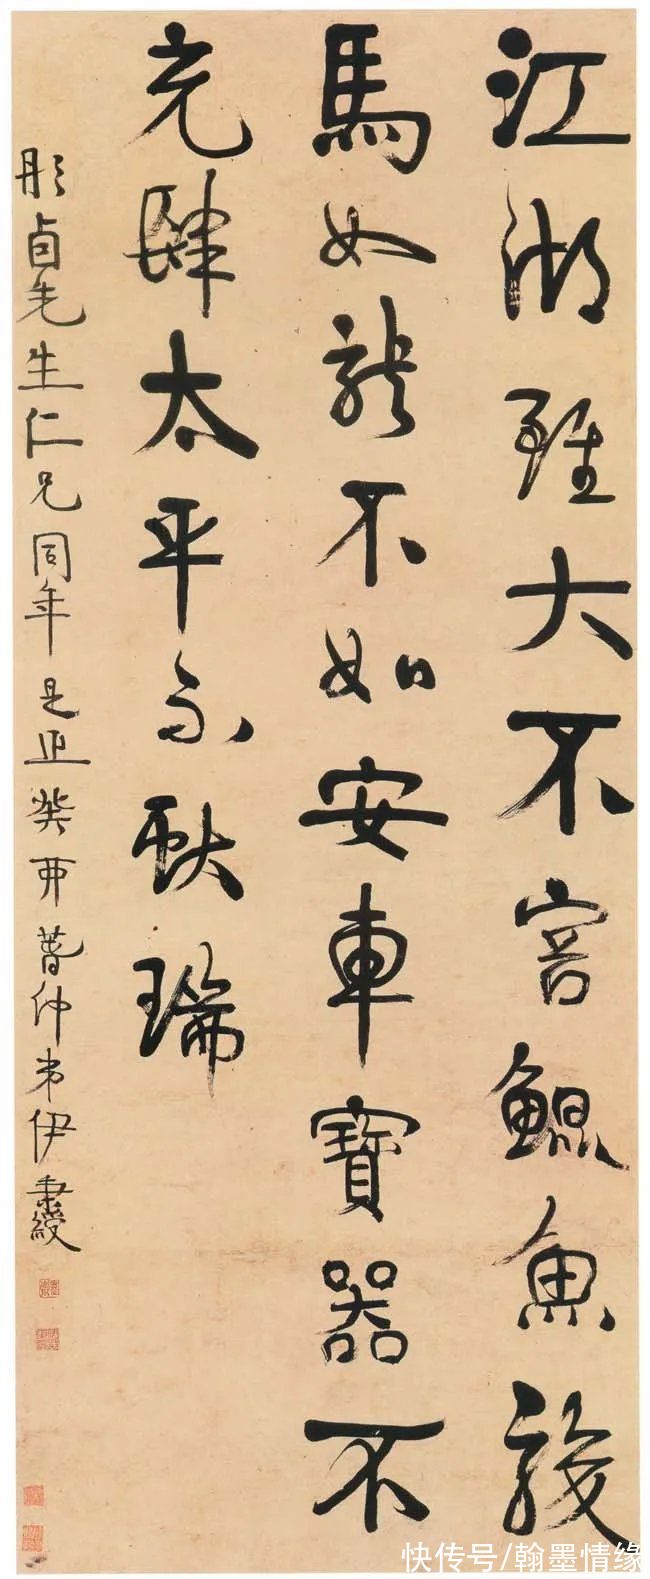 江湖雖大不容鯤魚駿
馬如龍不如安車寶器不
充肆太平不献瑞
彤卣先生仁兄同年是正癸酉春仲弟伊秉綬
快传号/翰墨情缘